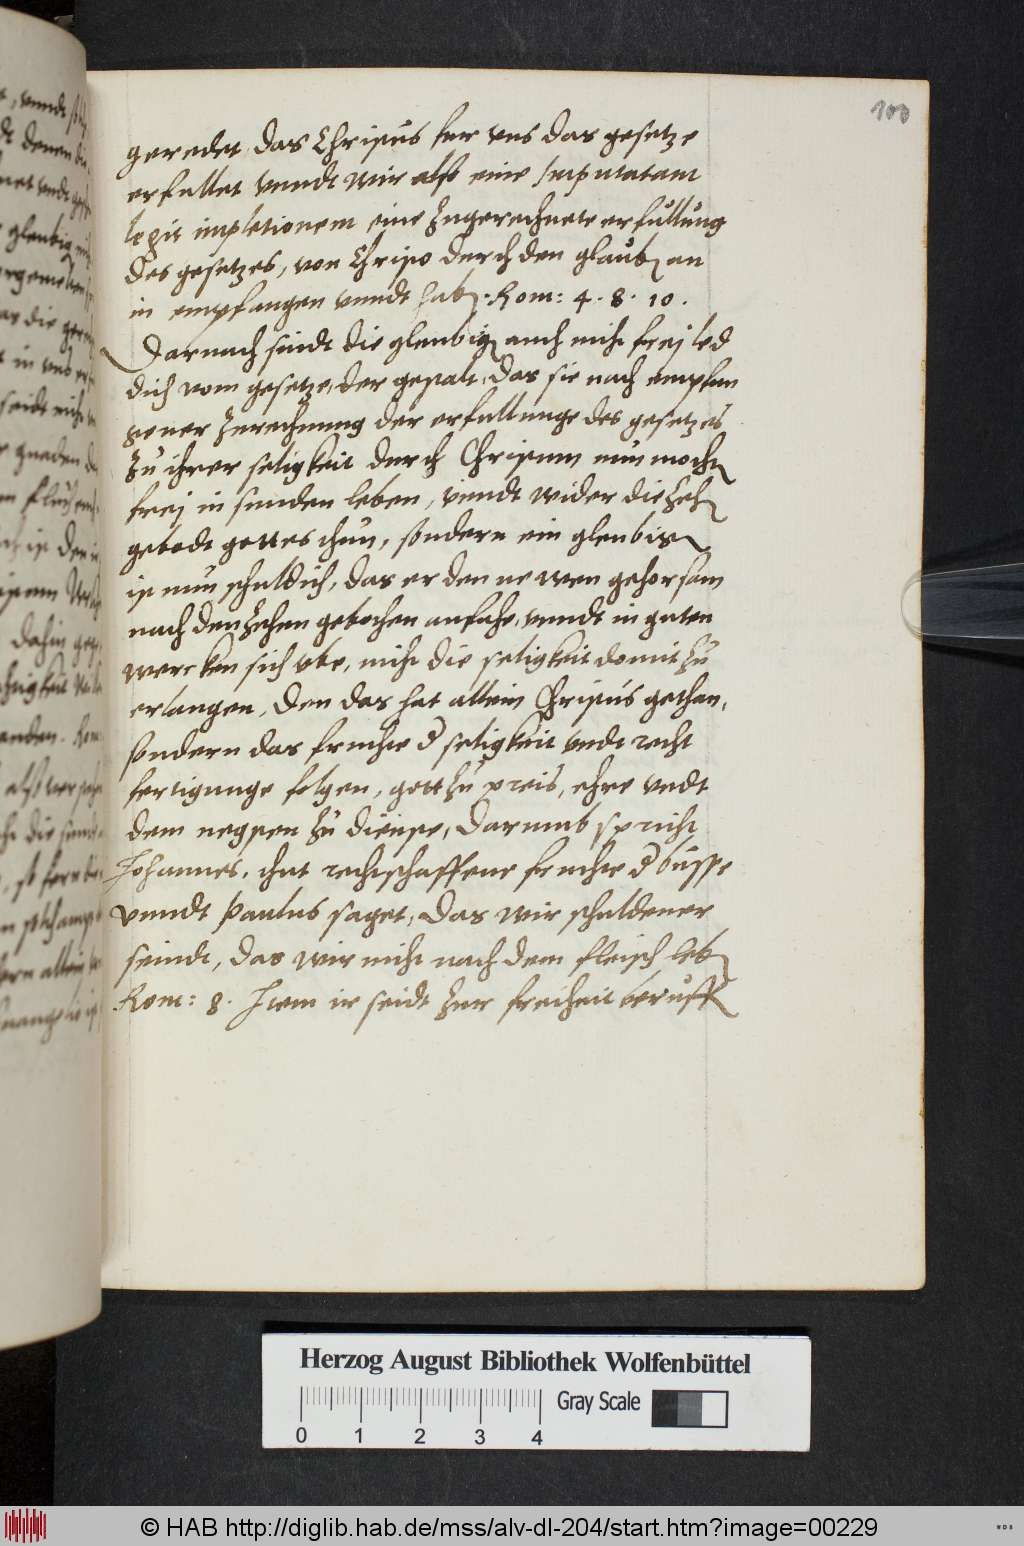 100
geredet das Christus fur vns das gesetze
erfullet vnndt wir also eine Imputatam
legis impletionem eine zugerechnete erfullung
des gesetzes, von Christo durch den glauben an
in empfangen vnndt haben. Rom: 4. 8. 10.
Darnach sindt die glenbigen auch nicht frej led
dich vom gesetze, der gestalt, das sie nach empfan
gener zurechnung der erfullunge des gesetzes
zu ihrer seligkeit durch Christum nun mochten
frej in sunden leben, vnndt wider die zehen
gebodt gottes thun, sondern ein glenbiger
ist nun schuldich, das er den newen gehorsam
nach den zehen geboten anfahe, vnndt in guten
wercken sich vbe, nicht die seligkeit domit zu
erlangen, Den das hat allein Christus gethan,
sondern das fruchte d seligkeit vndt recht
fertigunge folgen, gott zu preis, ehre vndt
dem negsten zu dienste, Darumb spricht
Johannes, thut rechtschaffene fruchte d busse
vnndt Paulus saget, Das wir schuldener
seindt, das wir nicht nach dem fleisch leben
Rom: 8. Item ir seidt zur freiheit beruffen
Herzog August Bibliothek Wolfenbüttel
Gray Scale
0 1 2 3 4
© HAB http://diglib.hab.de/mss/alv-dl-204/start.htm?image=00229